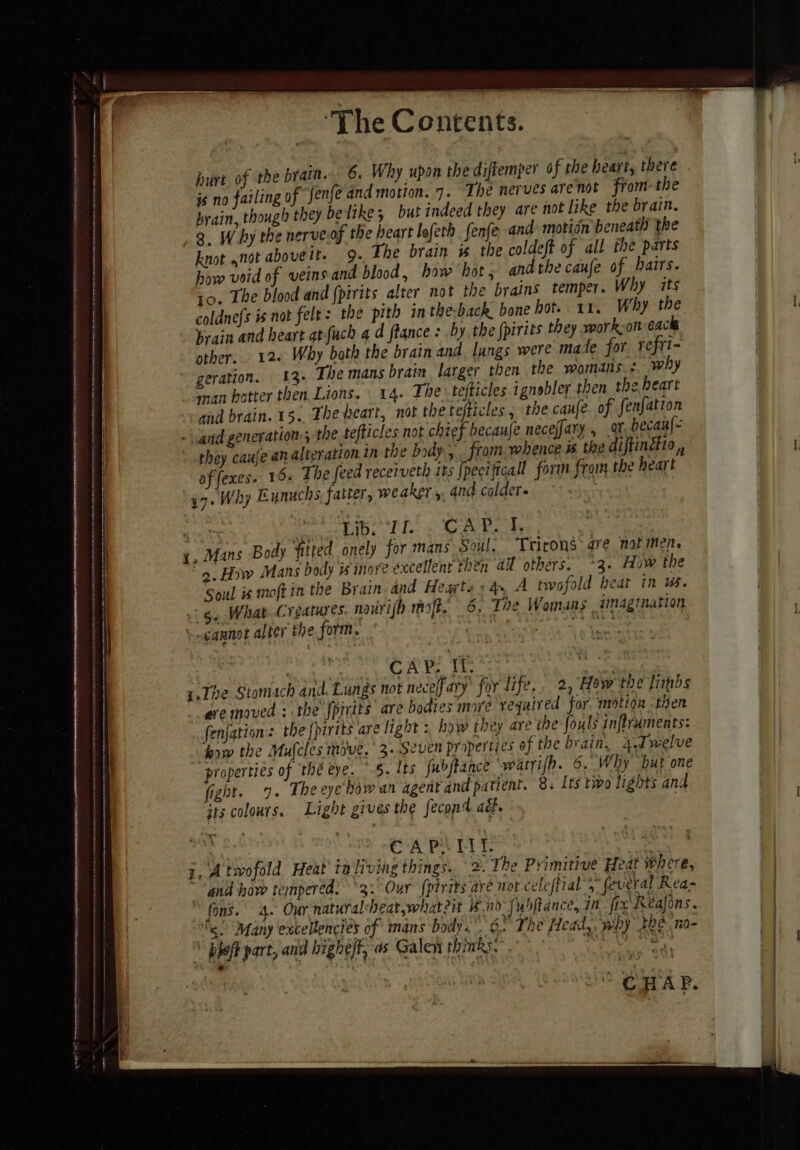 The Contents.
hurt of the brain. 6. Why upon the diſtemper of the heart, there
is no failing of ſenſe and motion. 7. The nerves are not from the
brain, though they be like; but indeed they are not like the brain.
8. Why the nerve of the heart loſeth ſenſe and motion beneath the
knot, not above it. 9. The brain is the coldeſt of all the parts
how void of veins and blood, how hot, and the cauſe of hairs.
10. The blood and ſpirits alter not the brains temper. Why its
coldneſs is not felt: the pith in the back bone hot. 11. Why the
brain and heart at ſuch a diſtance: by the ſpirits they work on each
other. 12. Why both the brain and lungs were made for refri-
geration. 13. The mans brain larger then the womans: why
man hotter then Lions. 14. The teſticles ignobler then the heart
and brain. 15. The heart, not the teſticles, the cauſe of ſenſation
and generation; the teſticles not chief becauſe neceſſary, or becauſ-
they cauſe an alteration in the body, from whence is the diſtinctio,
of ſexes. 16. The ſeed receiveth its ſpecificall form from the heart
17. Why Eunuchs fatter, weaker, and colder.
Lib. II. CAP. I.
1. Mans Body fitted onely for mans Soul. Tritons are not men.
2. How Mans body is more excellent then all others. 3. How the
Soul is moſt in the Brain and Heart. 4. A twofold heat in us.
5. What Creatures nouriſh moſt. 6. The Womans imagination
cannot alter the form.
CAP. II.
1. The Stomach and Lungs not neceſſary for life. 2, How the limbs
are moved: the ſpirits are bodies more required for motion then
ſenſation: the ſpirits are light: how they are the ſouls inſtruments:
how the Muſcles move. 3. Seven properties of the brain. 4. Twelve
properties of the eye. 5. Its ſubſtance watriſh. 6. Why but one
ſight. 7. The eye how an agent and patient. 8. Its two lights and
its colours. Light gives the ſecond act.
CAP. III.
1, A twofold Heat in living things. 2. The Primitive Heat where,
and how tempered. 3. Our ſpirits are not celeſtial, ſeveral Rea-
ſons. 4. Our natural heat, what? it is no ſubſtance, in ſix Reaſons.
5. Many excellencies of mans body. 6. The Head, why the no-
bleſt part, and higheſt, as Galen thinks.
CHAP.